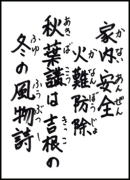 かないあんぜん
家内安全
かなんぼうじょ
火難防除
あきばこう きっこ
秋葉講は吉根の
ふゆ ふうぶつし
冬の風物詩